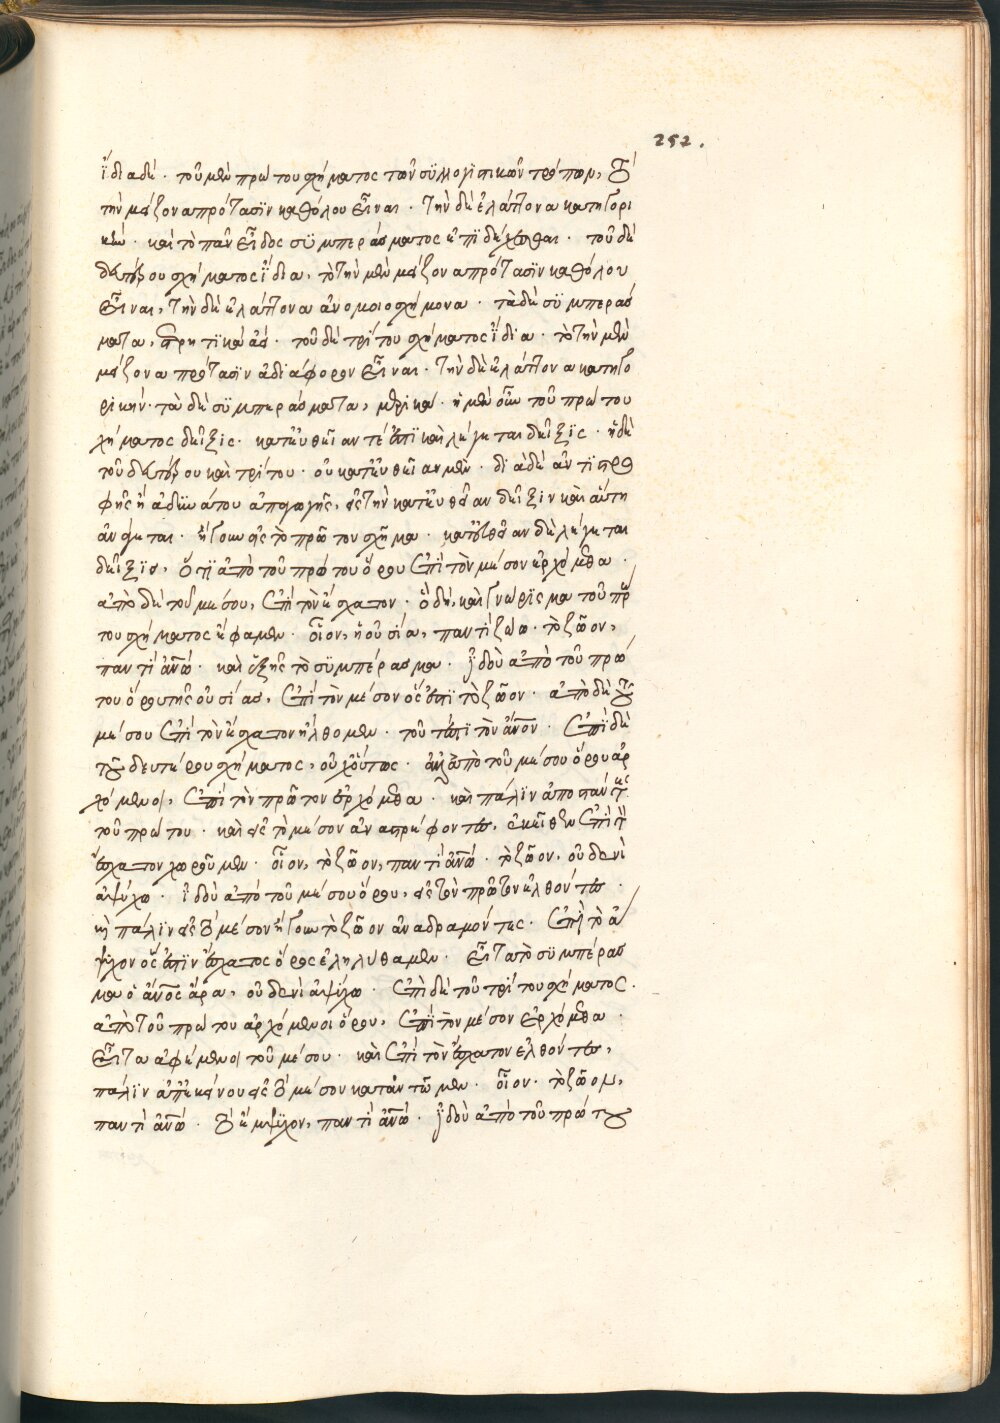 252.
ἴδια δὲ. τοῦ μὲν πρώτου σχήματος τῶν συλλογιστικῶν τρόπων, τὸ
τὴν μείζονα πρότασϊν καθόλου εἶναι. τὴν δὲ ἐλάττονα κατηγορι
κὴν. καὶ τὸ πᾶν εἶδος συμπεράσματος ἐπιδέχεσθαι. τοῦ δὲ
δευτέρου σχήματος ἴδια, τὸ τὴν μὲν μείζονα πρότασϊν καθόλου
εἶναι, τὴν δὲ ἐλάττονα ἀνομοιοσχήμονα. τὰ δὲ συμπεράσ
ματα, στερητικὰ ἀεὶ. τοῦ δὲ τρίτου σχήματος ἴδια. τὸ τὴν μὲν
μείζονα πρότασιν ἀδιάφορον εἶναι. τὴν δὲ ἐλάττονα κατηγο
ρικήν. τὰ δὲ συμπεράσματα, μερικά. ἡ μὲν οὖν τοῦ πρώτου
χήματος δεῖξις. κατευθεῖαν τέ ἐστϊ καὶ λέγεται δεῖξϊς. ἡ δὲ
τοῦ δευτέρου καὶ τρίτου. οὐ κατευθεῖαν μὲν. διὰ δὲ ἀντϊστρο
φῆς ἢ ἀδυνάτου ἀπαγωγῆς, εἰς τὴν κατευθεῖαν δεῖξιν καὶ αὕτη
ἀνάγεται. ἤγουν εἰς τὸ πρῶτον σχῆμα. κατευθεῖαν δὲ λέγεται
δεῖξϊς, ὅτϊ ἀπὸ τοῦ πρώτου ὅρου ἐπὶ τὸν μέσον ἐρχόμεθα.
ἀπὸ δὲ τοῦ μέσου, ἐπὶ τὸν ἔσχατον. ὃ δὴ καὶ γνώρισμα τοῦ πρώ
του σχήματος ἔφαμεν. οἷον, ἡ οὐσία, παντὶ ζώω. τὸ ζῶον,
παντὶ ἀνω. καὶ ἑξῆς τὸ συμπέρασμα. ἰδοὺ ἀπὸ τοῦ πρώ
του ὅρου τῆς οὐσίας, ἐπὶ τὸν μέσον ὅς ἐστι τὸ ζῶον. ἀπὸ δὲ τοῦ
μέσου ἐπὶ τὸν ἔσχατον ἤλθομεν. τοῦτ' ἔστι τὸν ἄνον. ἐπὶ δὲ
τοῦ δευτέρου σχήματος, οὐχ οὕτως. ἀλλ' ἀπὸ τοῦ μέσου ὅρου ἀρ
χόμενοι, ἐπὶ τὸν πρῶτον ἐρχόμεθα. καὶ πάλϊν
τοῦ πρώτου. καὶ εἰς τὸ μέσον ἀναστρέφοντες, ἐκεῖθεν ἐπὶ τὸν
ἔσχατον χωροῦμεν. οἷον, τὸ ζῶον, παντὶ ἀνω. τὸ ζῶον, οὐδενὶ
ἀψύχω. ἰδοὺ ἀπὸ τοῦ μέσου ὅρου, εἰς τὸν πρῶτον ἐλθόντες.
καὶ πάλϊν εἰς τὸ μέσον ἤγουν τὸ ζῶον ἀναδραμόντες. ἐπὶ τὸ ἄ
ψυχον ὅς ἐστϊν ἔσχατος ὅρος ἐληλύθαμεν. εἶτα τὸ συμπέρασ
μα ὁ ἄνος ἄρα, οὐδενὶ ἀψύχω. ἐπὶ δὲ τοῦ τρίτου σχήματος.
ἀπὸ τοῦ πρώτου ἀρχόμενοι ὅρου, ἐπὶ τὸν μέσον ἐρχόμεθα.
εἶτα ἀφέμενοι τοῦ μέσου. καὶ ἐπὶ τὸν ἔσχατον ἐλθόντες,
πάλϊν ἀπ' ἐκείνου εἰς τὸ μέσον καταντῶμεν. οἷον. τὸ ζῶον,
παντὶ ἀνω. τὸ ἔμψυχον, παντὶ ἀνω. ἰδοὺ ἀπὸ τοῦ πρώτου